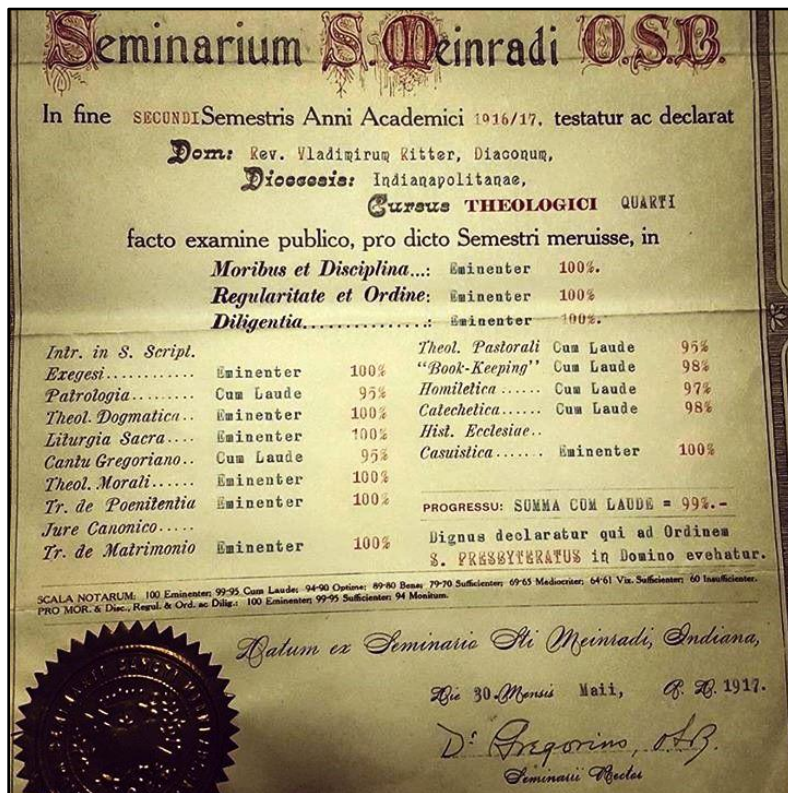 Seminarium S. Meinradi O.S.B.
In fine SECUNDI Semestris Anni Academici 1916/17. testatur ac declarat
Dom: Rev. Vladimirum Ritter, Diaconum,
Dioecesis: Indianapolitanae,
Cursus THEOLOGICI QUARTI
facto examine publico, pro dicto Semestri meruisse, in
Moribus et Disciplina...: Eminenter 100%.
Regularitate et Ordine: Eminenter 100%
Diligentia..............: Eminenter 100%.
Intr. in S. Script.
Exegesi............ Eminenter 100%
Patrologia......... Cum Laude 95%
Theol. Dogmatica.. Eminenter 100%
Liturgia Sacra.... Eminenter 100%
Cantu Gregoriano.. Cum Laude 95%
Theol. Morali...... Eminenter 100%
Tr. de Poenitentia Eminenter 100%
Jure Canonico.....
Tr. de Matrimonio Eminenter 100%
Theol. Pastorali Cum Laude 95%
"Book-Keeping" Cum Laude 98%
Homiletica...... Cum Laude 97%
Catechetica...... Cum Laude 98%
Hist. Ecclesiae..
Casuistica....... Eminenter 100%
PROGRESSU: SUMMA CUM LAUDE = 99%.-
Dignus declaratur qui ad Ordinem
S. PRESBYTERATUS in Domino evehatur.
SCALA NOTARUM: 100 Eminenter; 99-95 Cum Laude; 94-90 Optime; 89-80 Bene; 79-70 Sufficienter; 69-65 Mediocriter; 64-61 Vix. Sufficienter; 60 Insufficienter.
PRO MOR. & Disc., Regul. & Ord. ac Dilig.: 100 Eminenter; 99-95 Sufficienter; 94 Monitum.
Datum ex Seminario Sti Meinradi, Indiana,
Die 30. Mensis Maii, A. D. 1917.
Dr. Gregorius, O.S.B.
Seminarii Rector